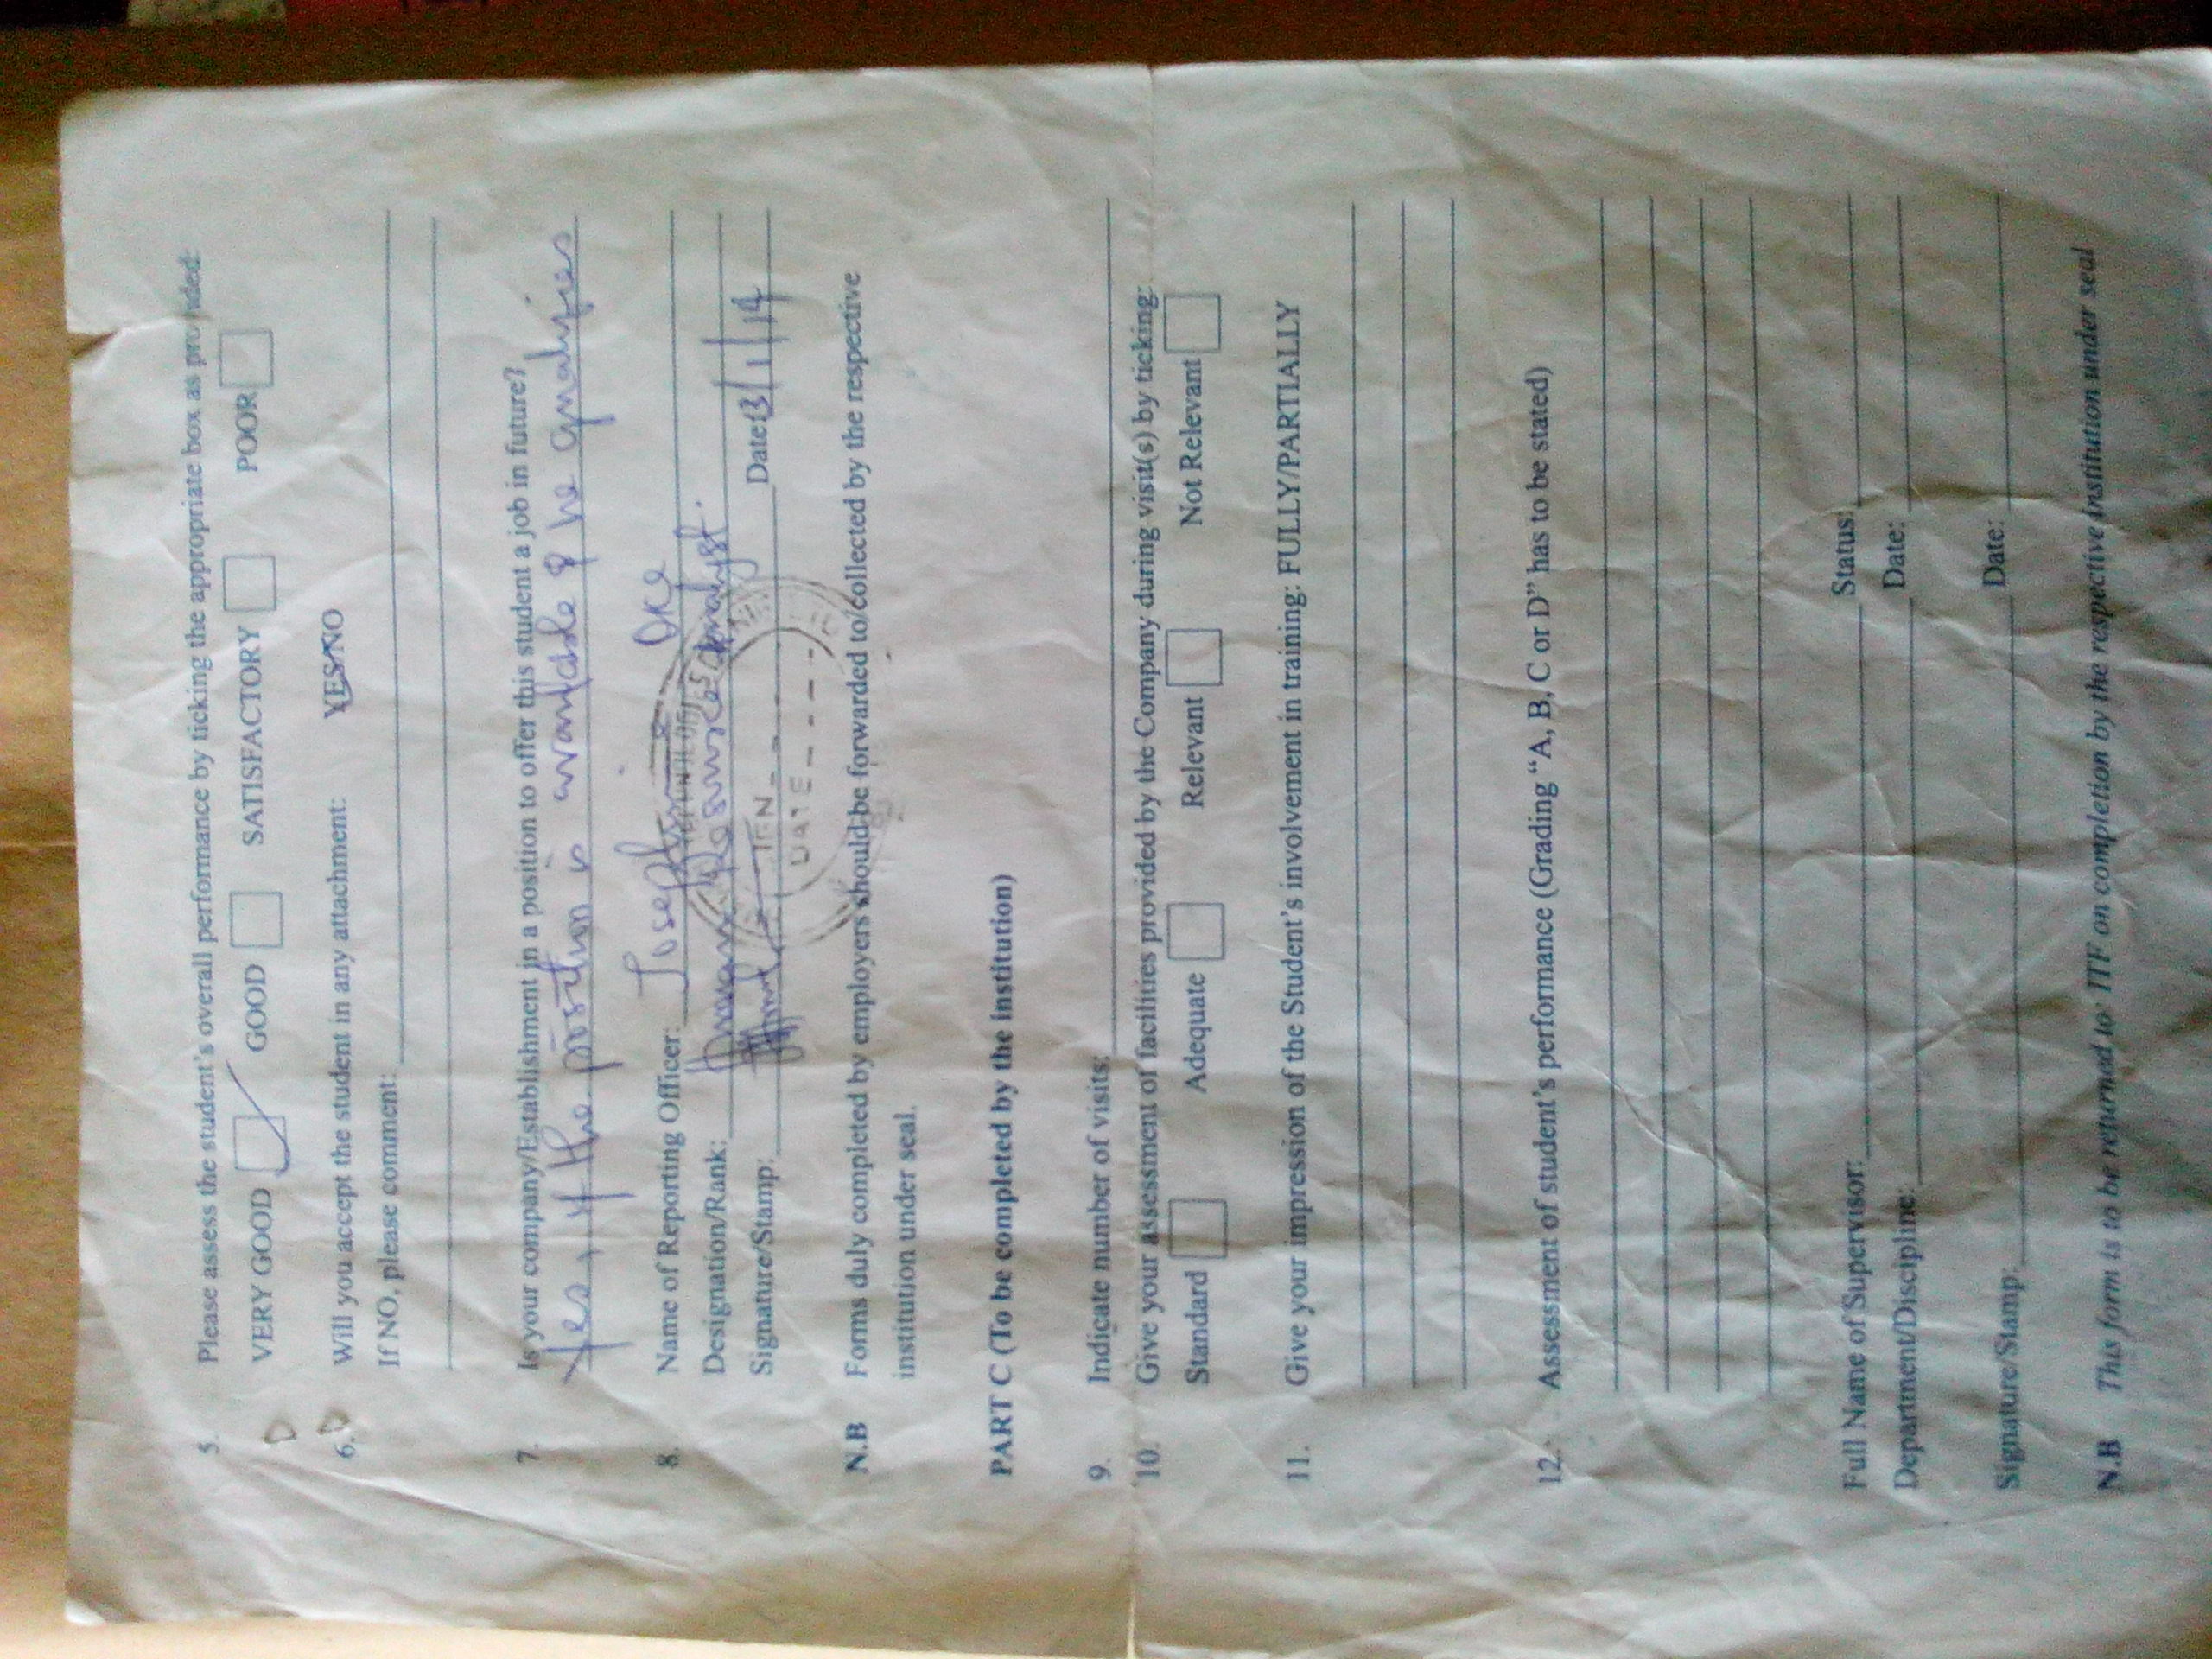 5. Please assess the student's overall performance by ticking the appropriate box as provided:
VERY GOOD GOOD SATISFACTORY POOR
6. Will you accept the student in any attachment: YES/NO
If NO, please comment:
7. Is your company/Establishment in a position to offer this student a job in future?
Yes, if the position is available & he qualifies
8. Name of Reporting Officer: Josephine Oke
Designation/Rank: Human Resource Analyst.
Signature/Stamp: Date: 13/1/14
TEN
DATE
N.B Forms duly completed by employers should be forwarded to/collected by the respective
institution under seal.
PART C (To be completed by the Institution)
9. Indicate number of visits:
10. Give your assessment of facilities provided by the Company during visit(s) by ticking:
Standard Adequate Relevant Not Relevant
11. Give your impression of the Student's involvement in training: FULLY/PARTIALLY
12. Assessment of student's performance (Grading "A, B, C or D" has to be stated)
Full Name of Supervisor: Status:
Department/Discipline: Date:
Signature/Stamp: Date:
N.B This form is to be returned to ITF on completion by the respective institution under seal